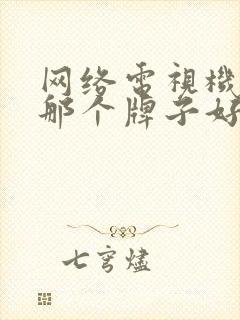 网络电視機
那个牌子好
七穹燼